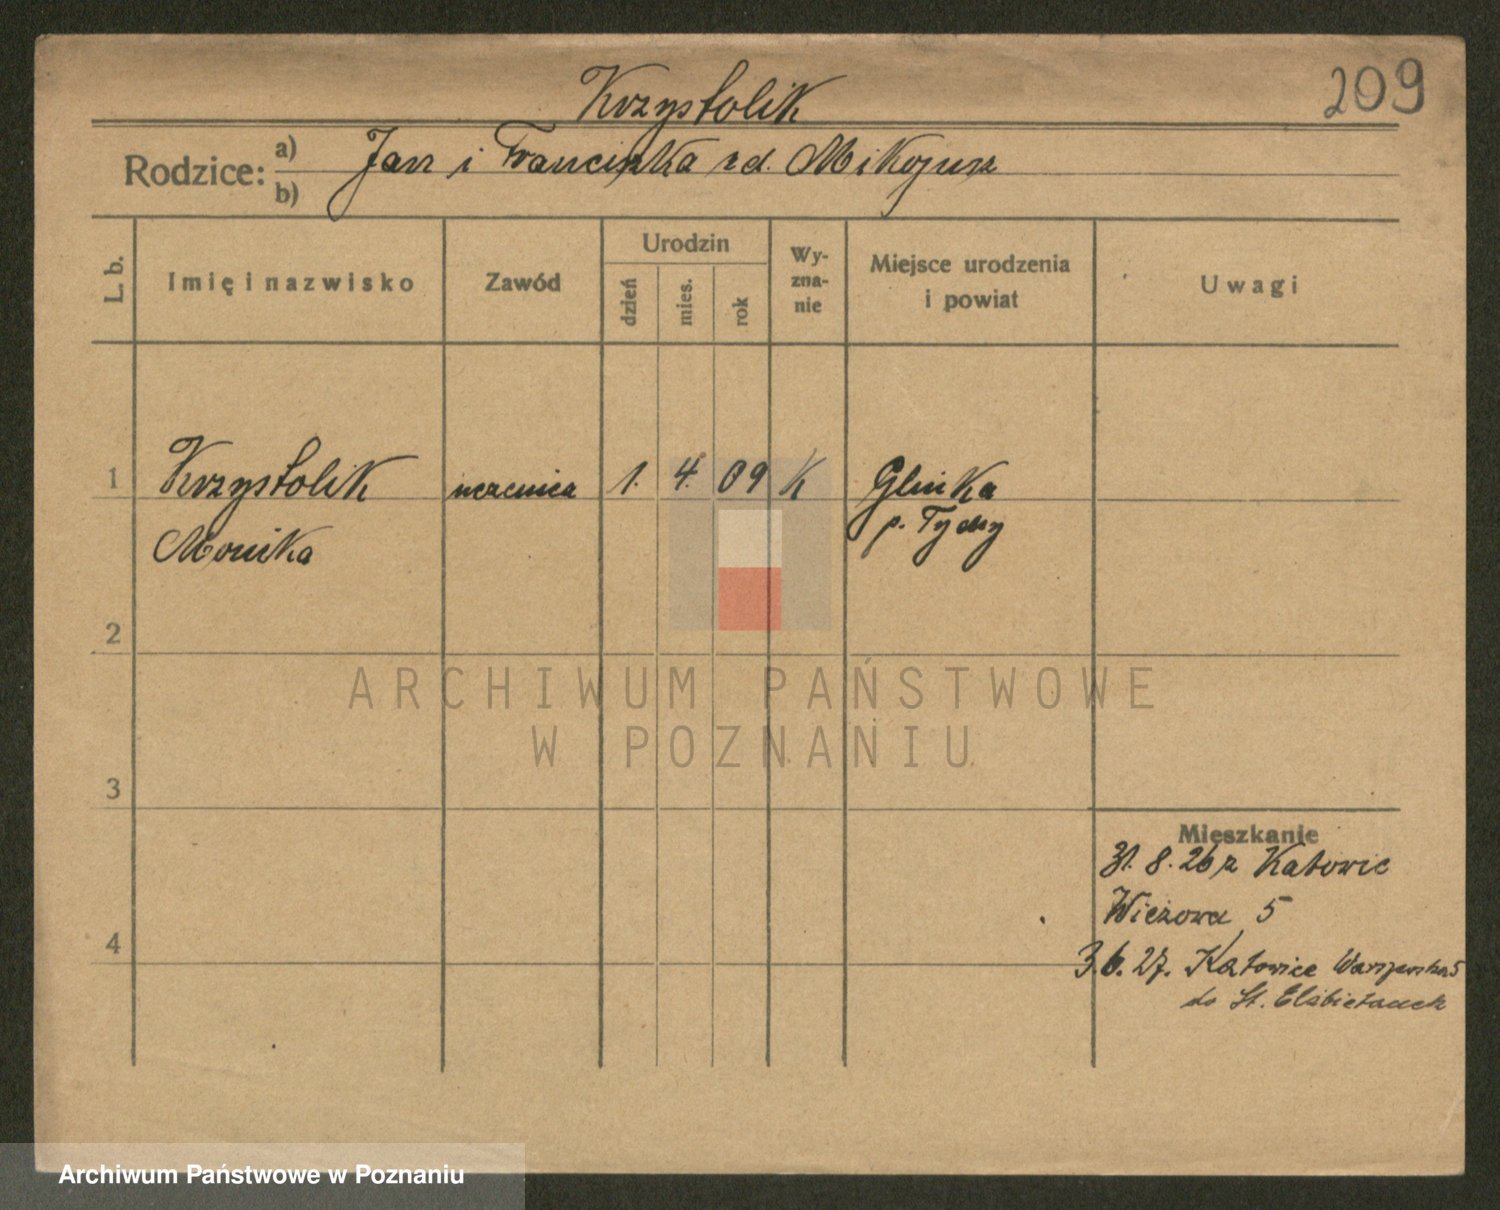 209
Krzystolik
Rodzice: a) Jan i Franciszka zd. Mikojusz
b)
L. b. Imię i nazwisko Zawód Urodzin dzień mies. rok Wy-zna-nie Miejsce urodzenia i powiat Uwagi
1 Krzystolik uczenica 1. 4. 09 K Glinka
Monika p. Tychy
2
3
4
Mieszkanie
31. 8. 26 z Katowic
Wieżowa 5
3.6. 27. Katowice Warszawska 5
do St. Elżbietanek
ARCHIWUM PAŃSTWOWE
W POZNANIU
Archiwum Państwowe w Poznaniu